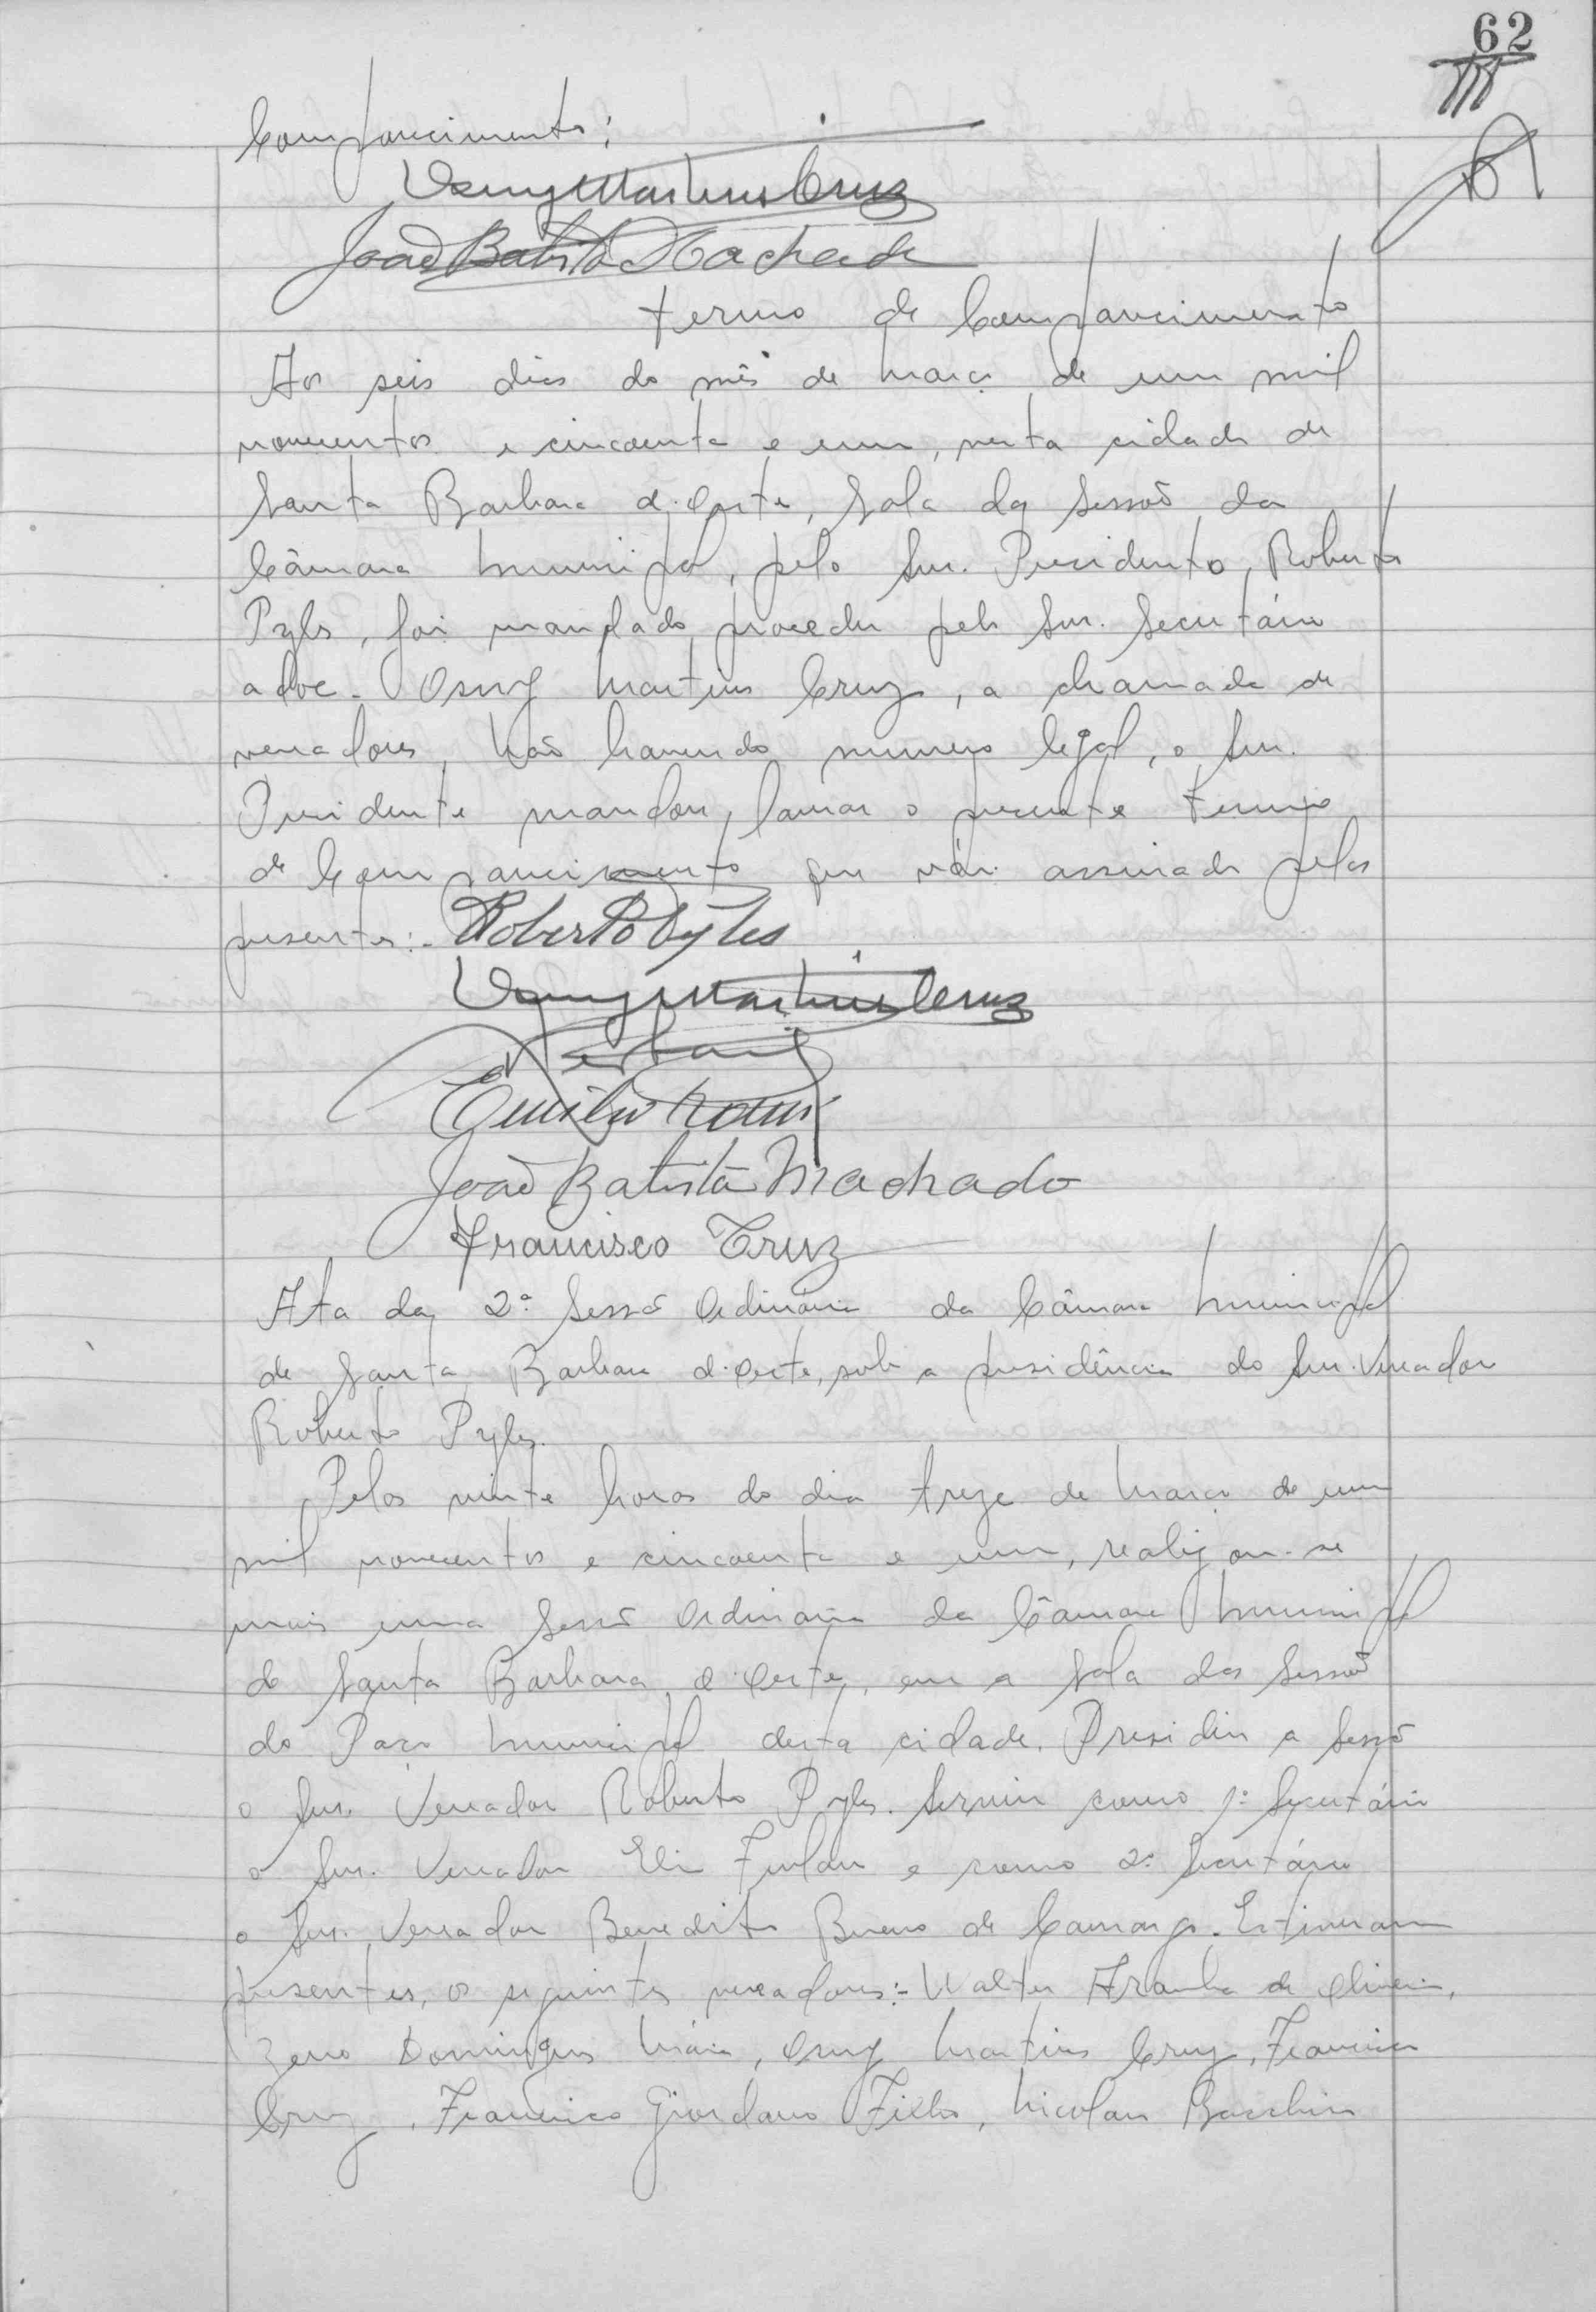 62
Comparecimento:
Osny Martins Cruz
João Batista Machado
termo de Comparecimento
Aos seis dias do mês de março de um mil
novecentos e cincoenta e um, nesta cidade de
Santa Barbara d'Oeste, sala das sessões da
Câmara Municipal, pelo Snr. Presidente, Roberto
Pyles, foi mandado proceder pelo Snr. Secretário
adoc. Osny Martins Cruz, a chamada de
vereadores, não havendo numero legal, o Snr.
Presidente mandou lavrar o presente termo
de Comparecimento que vai assinado pelos
presentes:-Roberto Pyles
Osny Martins Cruz
Emilio Romi
João Batista Machado
Francisco Cruz
Ata da 2ª Sessão Ordinária da Câmara Municipal
de Santa Barbara d'Oeste, sob a presidência do Snr. Vereador
Roberto Pyles.
Pelas vinte horas do dia treze de março de um
mil novecentos e cincoenta e um, realizou-se
mais uma Sessão Ordinária da Câmara Municipal
de Santa Barbara d'Oeste, em a sala das sessões
do Paço Municipal desta cidade. Presidiu a Sessão
o Snr. Vereador Roberto Pyles. Serviu como 1º Secretário
o Snr. Vereador Eli Furlan e como 2º Secretário
o Snr. Vereador Benedito Bueno de Camargo. Estiveram
presentes, os seguintes vereadores:- Walter Aranha de Oliveira,
Zeno Domingues Maia, Osny Martins Cruz, Francisco
Cruz, Francisco Giordano Filho, Nicolau Bacchin